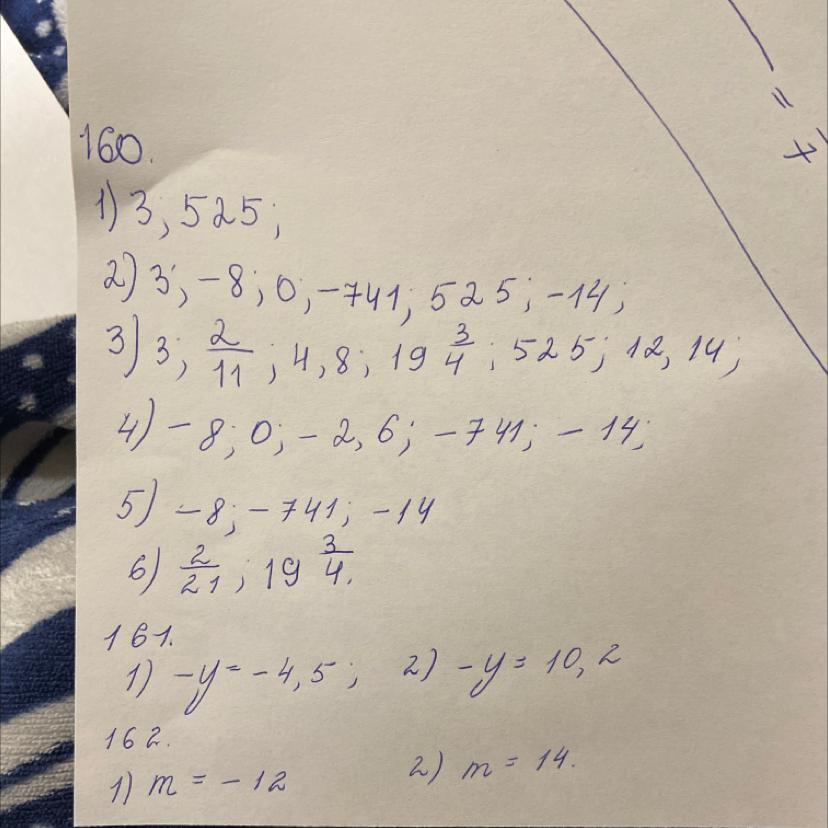 = 7
160.
1) 3; 525;
2) 3; -8; 0; -741; 525; -14;
3) 3; 2/11; 4,8; 19 3/4; 525; 12,14;
4) -8; 0; -2,6; -741; -14;
5) -8; -741; -14
6) 2/21; 19 3/4.
161.
1) -y = -4,5; 2) -y = 10,2
162.
1) m = -12 2) m = 14.